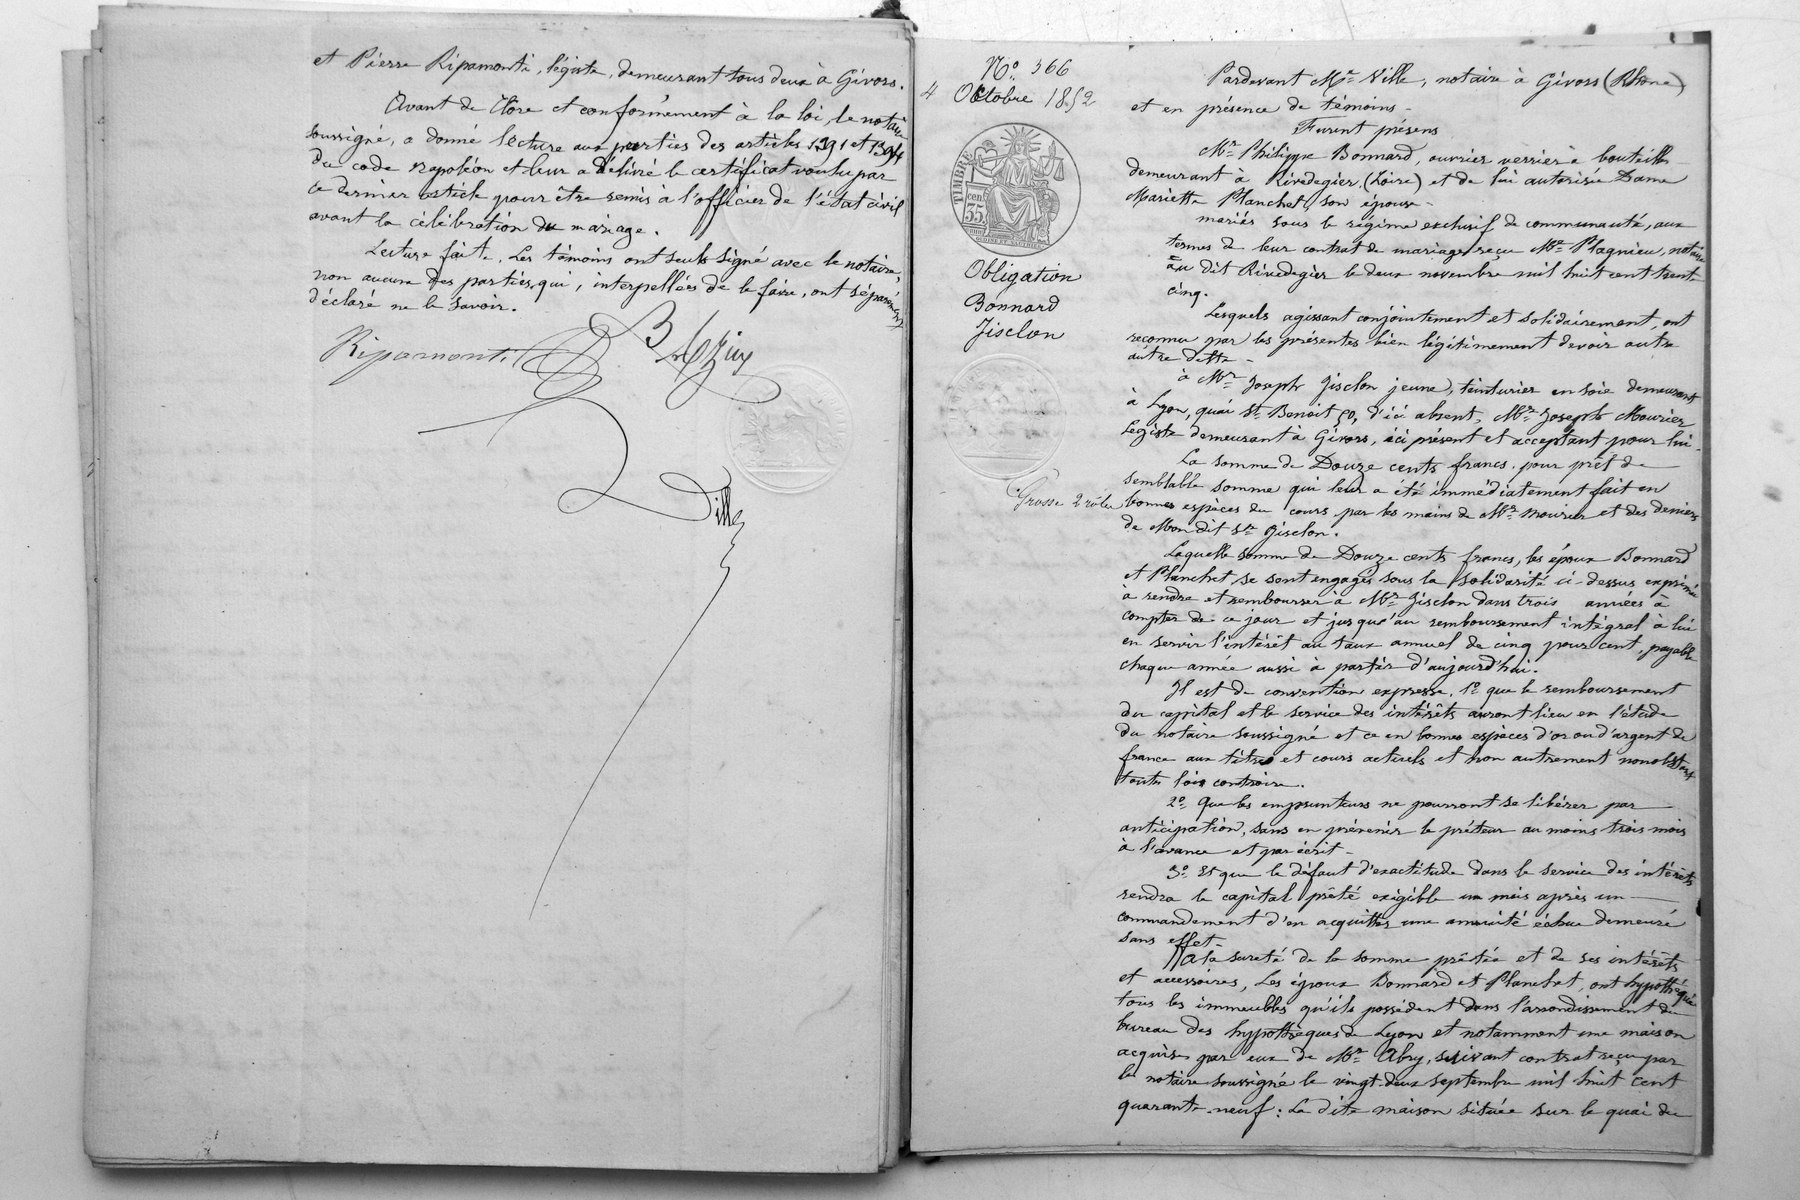 et Pierre Ripamonti, légiste, demeurant tous deux à Givors.
Avant de clore et conformément à la loi, le notaire
soussigné, a donné lecture aux parties des articles 1391 et 1394
du code Napoléon et leur a délivré le certificat voulu par
ce dernier article pour être remis à l'officier de l'état civil
avant la célébration du mariage.
Lecture faite. Les témoins ont seuls signé avec le notaire,
non aucune des parties qui, interpellées de le faire, ont séparément
déclaré ne le savoir.
Ripamonti
Ville
No. 366
4 Octobre 1852
TIMBRE
35 cen.
Obligation
Bonnard
Gisclon
Grosse 2 rôles
Pardevant Me Ville, notaire à Givors (Rhône)
et en présence de témoins -
Furent présens
Mr Philippe Bonnard, ouvrier verrier à bouteilles
demeurant à Rivedegier, (Loire) et de lui autorisée Dame
Mariette Planchet, son épouse -
mariés sous le régime exclusif de communauté, aux
termes de leur contrat de mariage reçu Me Plagnieu, notaire
au dit Rivedegier le deux novembre mil huit cent trente
cinq.
Lesquels agissant conjointement et solidairement, ont
reconnu par les présentes bien légitimement devoir outre
autre dette -
à Mr Joseph Gisclon jeune, teinturier en soie demeurant
à Lyon, quai St Benoit 50, d'ici absent, Mr Joseph Mourier
Légiste demeurant à Givors, ici présent et acceptant pour lui -
La somme de Douze cents francs, pour prêt de
semblable somme qui leur a été immédiatement fait en
bonnes espèces du cours par les mains de Mr Mourier et des deniers
de Mon dit Sr Gisclon.
Laquelle somme de Douze cents francs, les époux Bonnard
et Planchet se sont engagés sous la solidarité ci-dessus exprimée
à rendre et rembourser à Mr Gisclon dans trois années à
compter de ce jour et jusqu'au remboursement intégral à lui
en servir l'intérêt au taux annuel de cinq pour cent, payable
chaque année aussi à partir d'aujourd'hui.
Il est de convention expresse, 1o que le remboursement
du capital et le service des intérêts auront lieu en l'étude
du notaire soussigné et ce en bonnes espèces d'or ou d'argent de
france aux titres et cours actuels et non autrement nonobstant
toutes lois contraires.
2o Que les emprunteurs ne pourront se libérer par
anticipation, sans en prévenir le prêteur au moins trois mois
à l'avance et par écrit -
3o Et que le défaut d'exactitude dans le service des intérêts
rendra le capital prêté exigible un mois après un
commandement d'en acquitter une annuité échue demeuré
sans effet -
A la sureté de la somme prêtée et de ses intérêts
et accessoires, Les époux Bonnard et Planchet, ont hypothéqué
tous les immeubles qu'ils possèdent dans l'arrondissement du
bureau des hypothèques de Lyon et notamment une maison
acquise par eux de Mr Abry, suivant contrat reçu par
le notaire soussigné le vingt-deux septembre mil huit cent
quarante-neuf : La dite maison située sur le quai du